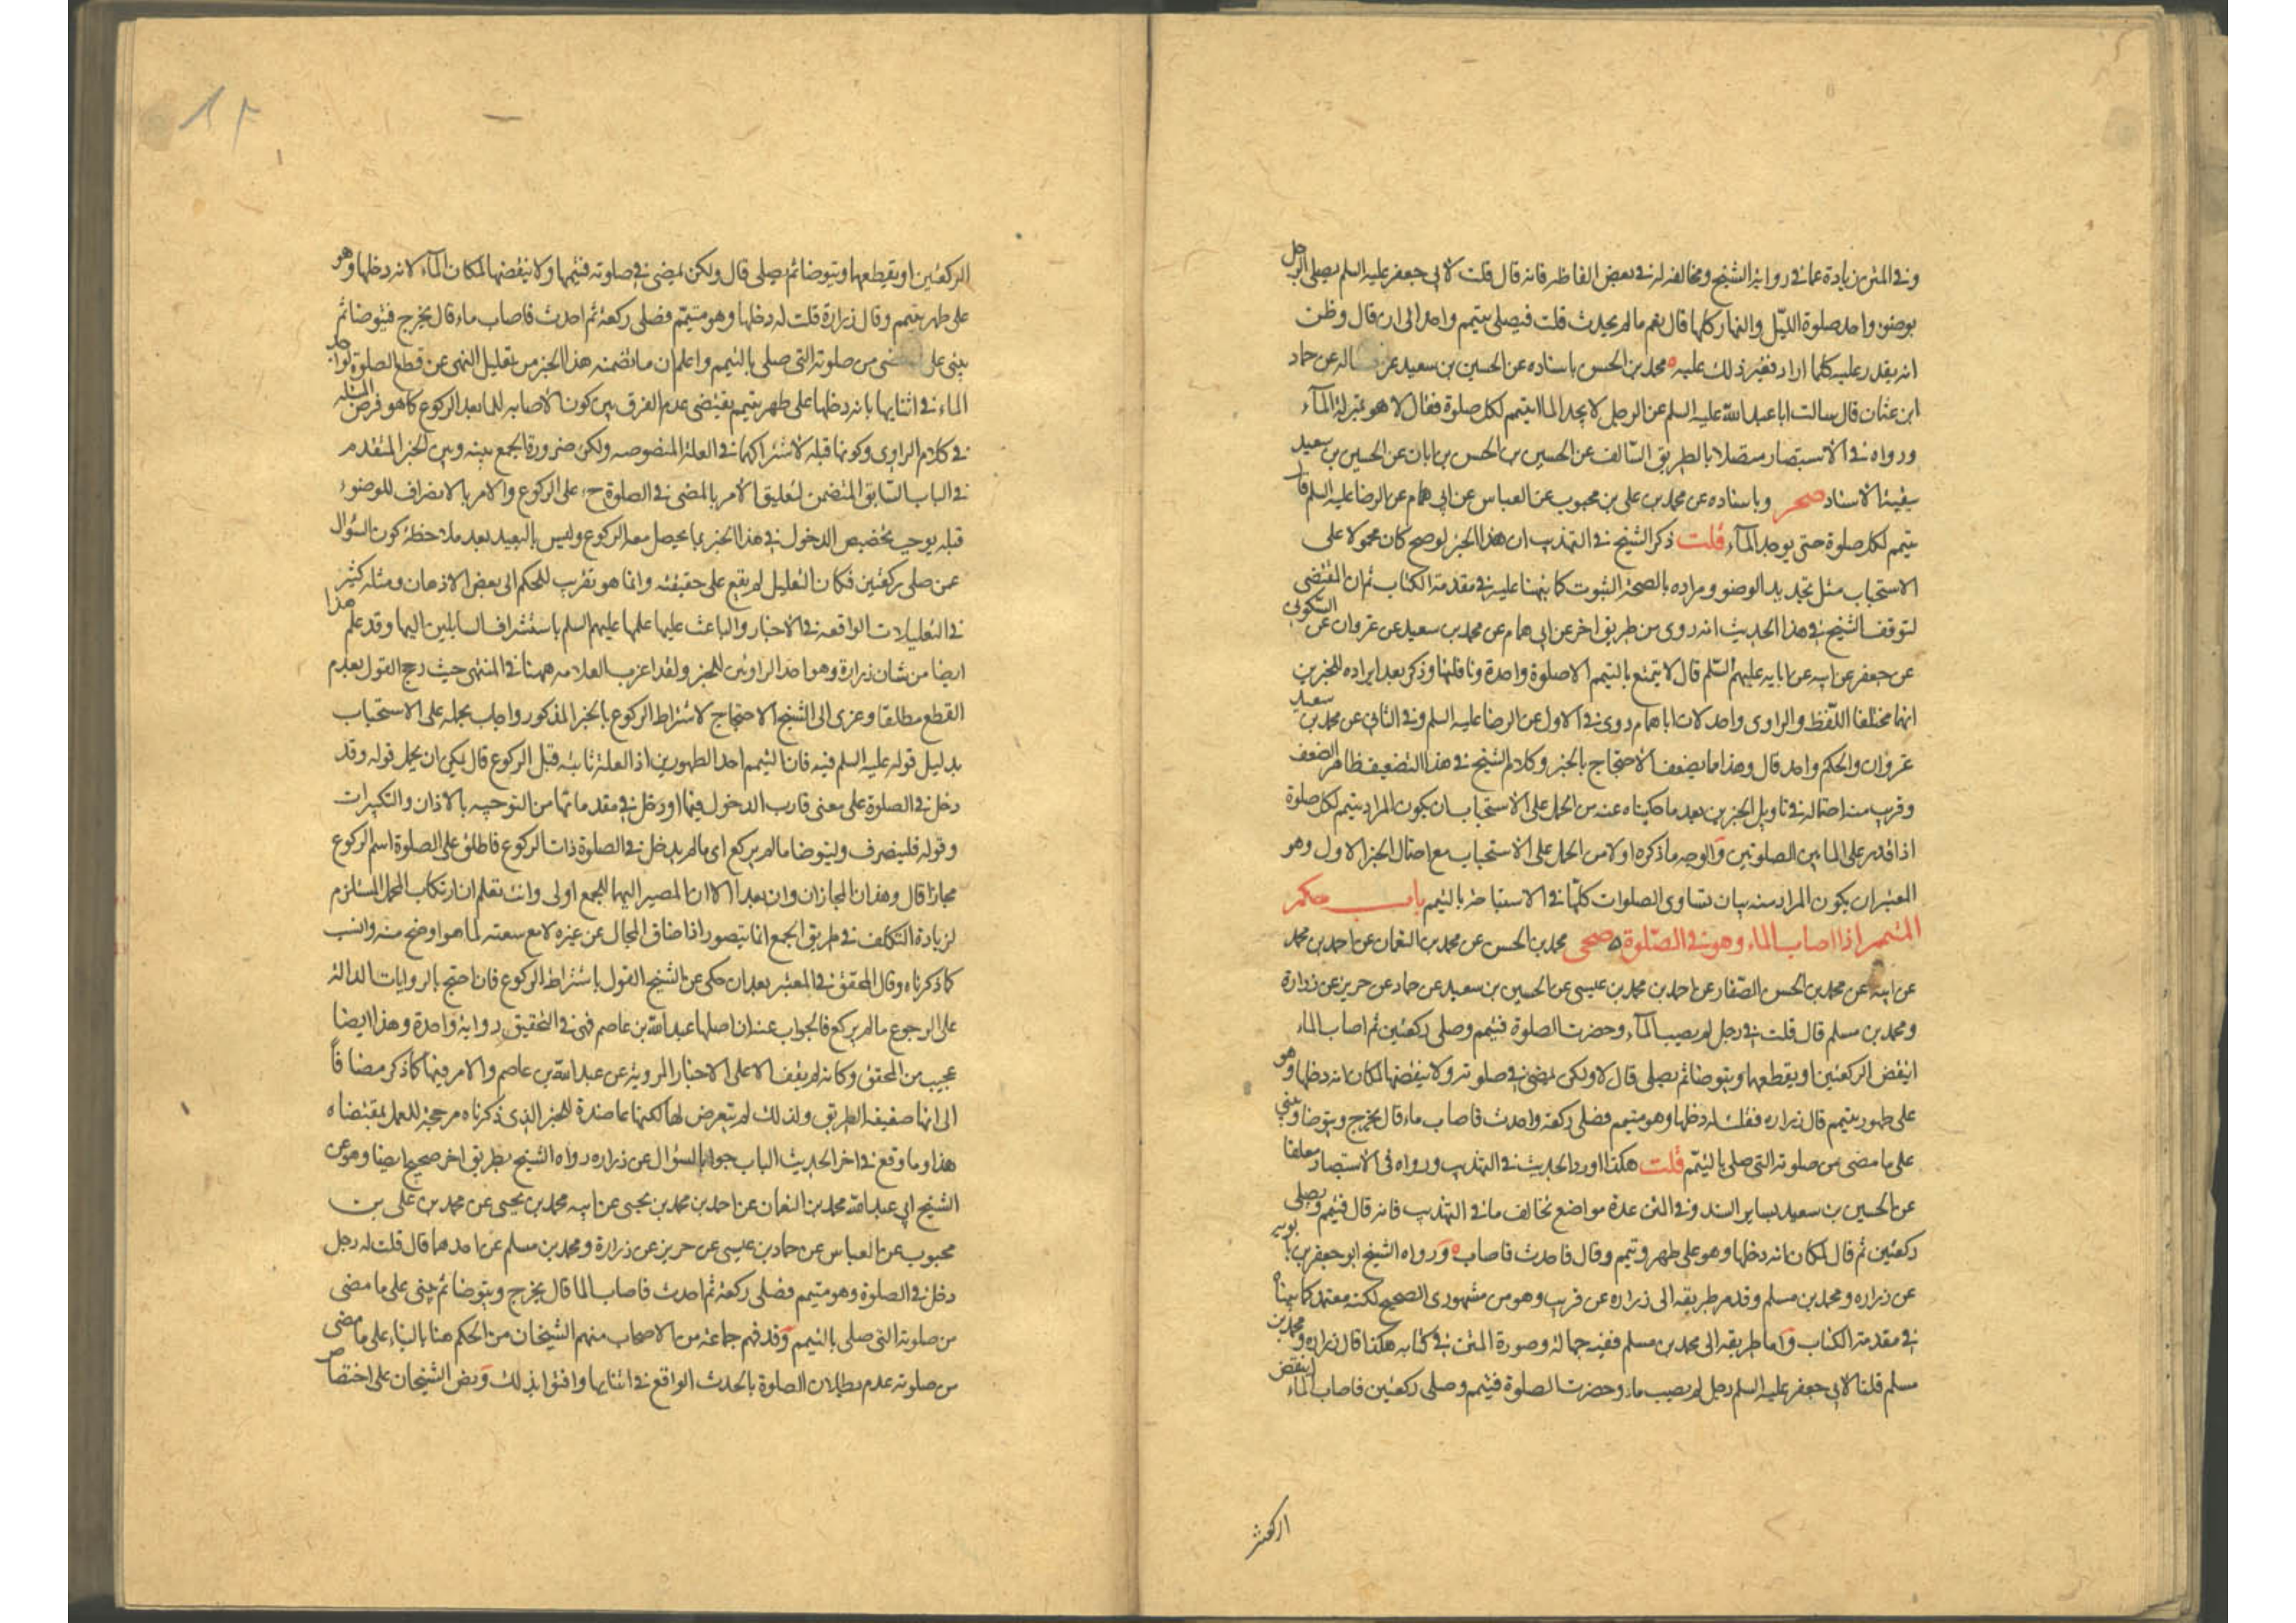 وفي المتن زيادة عما في رواية الشيخ ومخالفة له في بعض الفاظه فانه قال قلت لابي جعفر عليه السلم يصلى الرجل
بوضوء واحد صلوة الليل والنهار كلها قال نعم ما لم يحدث قلت فيصلى بتيمم واحد الى ان قال وظن
انه يقدر عليه كلما اراد فعسر ذلك عليه ٥ محمد بن الحسن باسناده عن الحسين بن سعيد عن حماد
ابن عثمان قال سالت ابا عبد الله عليه السلم عن الرجل لا يجد الما ايتيمم لكل صلوة فقال لا هو بمنزلة المآء
ورواه في الاستبصار متصلا بالطريق السالف عن الحسين بن الحسن بن ابان عن الحسين بن سعيد
ببقية الاسناد صحر وباسناده عن محمد بن على بن محبوب عن العباس عن ابي همام عن الرضا عليه السلم قال
يتيمم لكل صلوة حتى يوجد المآء قلت ذكر الشيخ في التهذيب ان هذا الخبر لو صح كان محمولا على
الاستحباب مثل تجديد الوضوء ومراده بالصحة الثبوت كما نبهنا عليه في مقدمة الكتاب ثم ان المقتضى
لتوقف الشيخ في هذا الحديث انه روى من طريق اخر عن ابي همام عن محمد بن سعيد عن غزوان عن السكوني
عن جعفر عن ابيه عن ابايه عليهم السلم قال لا يتمتع بالتيمم الا صلوة واحدة ونافلتها وذكر بعد ايراده للخبرين
انهما مختلفا اللفظ والراوى واحد لان ابا همام روى في الاول عن الرضا عليه السلم وفي الثاني عن محمد بن سعيد
غزوان والحكم واحد قال وهذا مما يضعف الاحتجاج بالخبر وكلام الشيخ في هذا التضعيف ظاهر الضعف
وقريب منه احتماله في تاويل الخبرين بعد ما حكيناه عنه من الحمل على الاستحباب ان يكون المراد يتيمم لكل صلوة
اذا قدر على الما بين الصلوتين والوجه ما ذكره اولا من الحمل على الاستحباب مع احتمال الخبر الاول وهو
المعتبر ان يكون المراد منه بيان تساوى الصلوات كلها في الاستباحة بالتيمم باب حكم
المتيمم اذا اصاب الماء وهو في الصلوة ٥ صحى محمد بن الحسن عن محمد بن النعمان عن احمد بن محمد
عن ابيه عن محمد بن الحسن الصفار عن احمد بن محمد بن عيسى عن الحسين بن سعيد عن حماد عن حريز عن زرارة
ومحمد بن مسلم قال قلت في رجل لم يصب المآء وحضرت الصلوة فتيمم وصلى ركعتين ثم اصاب الماء
اينقض الركعتين او يقطعهما ويتوضا ثم يصلى قال لا ولكن يمضى في صلوته ولا ينقضها لمكان انه دخلها وهو
على طهور بتيمم قال زراره فقلت له دخلها وهو متيمم فصلى ركعة واحدث فاصاب ماء قال يخرج ويتوضا ويبني
على ما مضى من صلوته التي صلى بالتيمم قلت هكذا اورد الحديث في التهذيب ورواه في الاستبصار معلقا
عن الحسين بن سعيد بساير السند وفي المتن عدة مواضع تخالف ما في التهذيب فانه قال فتيمم ويصلى
ركعتين ثم قال لمكان انه دخلها وهو على طهر وتيمم وقال فاحدث فاصاب ٥ ورواه الشيخ ابو جعفر بن بابويه
عن زراره ومحمد بن مسلم وقد مر طريقه الى زراره عن قريب وهو من مشهوري الصحيح لكنه معتمد كما بيناه
في مقدمة الكتاب واما طريقه الى محمد بن مسلم ففيه جهالة وصورة المتن في كتابه هكذا قال زراره ومحمد بن
مسلم قلنا لابي جعفر عليه السلم رجل لم يصب ماء وحضرت الصلوة فتيمم وصلى ركعتين فاصاب الماء اينقض
الركعتين
الركعتين او يقطعهما ويتوضا ثم يصلى قال ولكن يمضى في صلوته فيتمها ولا ينقضها لمكان المآء لانه دخلها وهو
على طهر بتيمم وقال زرارة قلت له دخلها وهو متيمم فصلى ركعة ثم احدث فاصاب ماء قال يخرج فيتوضا ثم
يبني على ما مضى من صلوته التي صلى بالتيمم واعلم ان ما تضمنه هذا الخبر من تعليل النهى عن قطع الصلوة لواجد
الماء في اثنايها بانه دخلها على طهر بتيمم يقتضى عدم الفرق بين كون الاصابة للما بعد الركوع كما هو فرض المسئلة
في كلام الراوى وكونها قبله لاشتراكهما في العلة المنصوصه ولكن ضرورة الجمع بينه وبين الخبر المتقدم
في الباب السابق المتضمن لتعليق الامر بالمضى في الصلوة ح على الركوع والامر بالانصراف للوضوء
قبله يوجب تخصيص الدخول في هذا الخبر بما يحصل معه الركوع وليس بالبعيد بعد ملاحظة كون السؤال
عمن صلى ركعتين فكان التعليل لم يقع على حقيقته وانما هو تقريب للحكم الى بعض الاذهان ومثله كثير
في التعليلات الواقعه في الاخبار والباعث عليها علمها عليهم السلم باستشراف السايلين اليها وقد علم هذا
ايضا من شان زرارة وهو احد الراويين للخبر ولقد اغرب العلامه ههنا في المنتهى حيث رجح القول بعدم
القطع مطلقا وعزى الى الشيخ الاحتجاج لاشتراط الركوع بالخبر المذكور واجاب بحمله على الاستحباب
بدليل قوله عليه السلم فيه فان التيمم احد الطهورين اذ العلة ثابتة قبل الركوع قال يمكن ان يحمل قوله وقد
دخل في الصلوة على معنى قارب الدخول فيها او دخل في مقدماتها من التوجه بالاذان والتكبيرات
وقوله فلينصرف وليتوضا ما لم يركع اى ما لم يدخل في الصلوة ذات الركوع فاطلق على الصلوة اسم الركوع
مجازا قال وهذان المجازان وان بعدا الا ان المصير اليهما للجمع اولى وانت تعلم ان ارتكاب المحمل المستلزم
لزيادة التكلف في طريق الجمع انما يتصور اذا ضاق المجال عن غيره لا مع سعته لما هو اوضح منه وانسب
كما ذكرناه وقال المحقق في المعتبر بعد ان حكى عن الشيخ القول باشتراط الركوع فان احتج بالروايات الدالة
على الرجوع ما لم يركع فالجواب عنه ان اصلها عبد الله بن عاصم فهى في التحقيق رواية واحدة وهذا ايضا
عجيب من المحقق وكانه لم يقف الا على الاخبار المروية عن عبد الله بن عاصم والامر فيها كما ذكر مضافا
الى انها ضعيفة الطريق ولذلك لم يتعرض لها لكنها عاضدة للخبر الذى ذكرناه مرجحة للعمل بمقتضاه
هذا وما وقع في اخر الحديث الباب جوابا لسؤال عن زراره رواه الشيخ بطريق اخر صحيح ايضا وهو عن
الشيخ ابي عبد الله محمد بن النعمان عن احمد بن محمد بن يحيى عن ابيه محمد بن يحيى عن محمد بن على بن
محبوب عن العباس عن حماد بن عيسى عن حريز عن زرارة ومحمد بن مسلم عن احدهما قال قلت له رجل
دخل في الصلوة وهو متيمم فصلى ركعة ثم احدث فاصاب الما قال يخرج ويتوضا ثم يبني على ما مضى
من صلوته التي صلى بالتيمم وقد فهم جماعة من الاصحاب منهم الشيخان من الحكم هنا بالبناء على ما مضى
من صلوته عدم بطلان الصلوة بالحدث الواقع في اثنايها وافتوا بذلك ونص الشيخان على اختصا